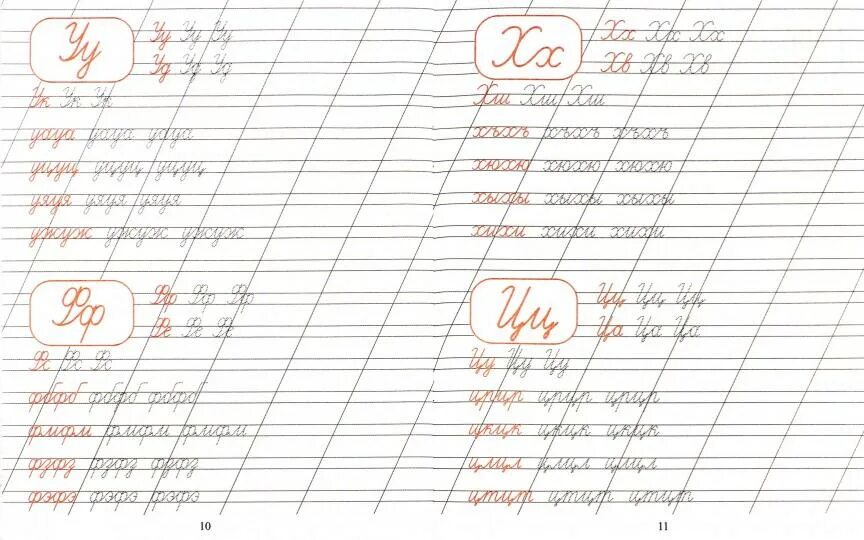 Уу
Уу Уу Уу
Уд Уд Уд
Ук Ук Ук
уауа уауа уауа
уцуц уцуц уцуц
уяуя уяуя уяуя
ужуж ужуж ужуж
Фф
Фф Фф Фф
Фе Фе Фе
Фс Фс Фс
фбфб фбфб фбфб
фмфм фмфм фмфм
фзфз фзфз фзфз
фэфэ фэфэ фэфэ
10
Хх
Хх Хх Хх
Хв Хв Хв
Хш Хш Хш
хъхъ хъхъ хъхъ
хюхю хюхю хюхю
хыхы хыхы хыхы
хихи хихи хихи
Цц
Цц Цц Цц
Ца Ца Ца
Цу Цу Цу
црцр црцр црцр
цкцк цкцк цкцк
цлцл цлцл цлцл
цтцт цтцт цтцт
11